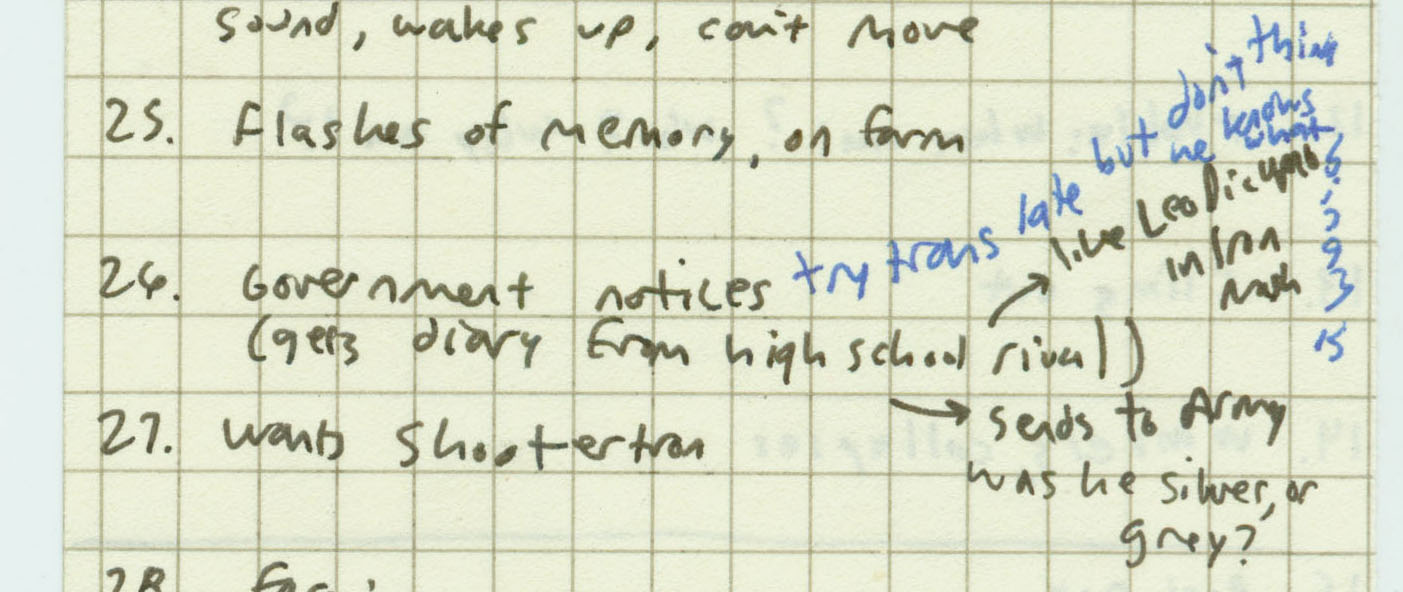 sound, wakes up, can't move
25. Flashes of memory, on farm
26. Government notices
(gets diary from high school rival)
try translate but don't think he knows what
like Leo Dicaprio
in Iron
Mask
5
9
3
15
27. wants Shootertron
sends to Army
was he silver, or
grey?
28